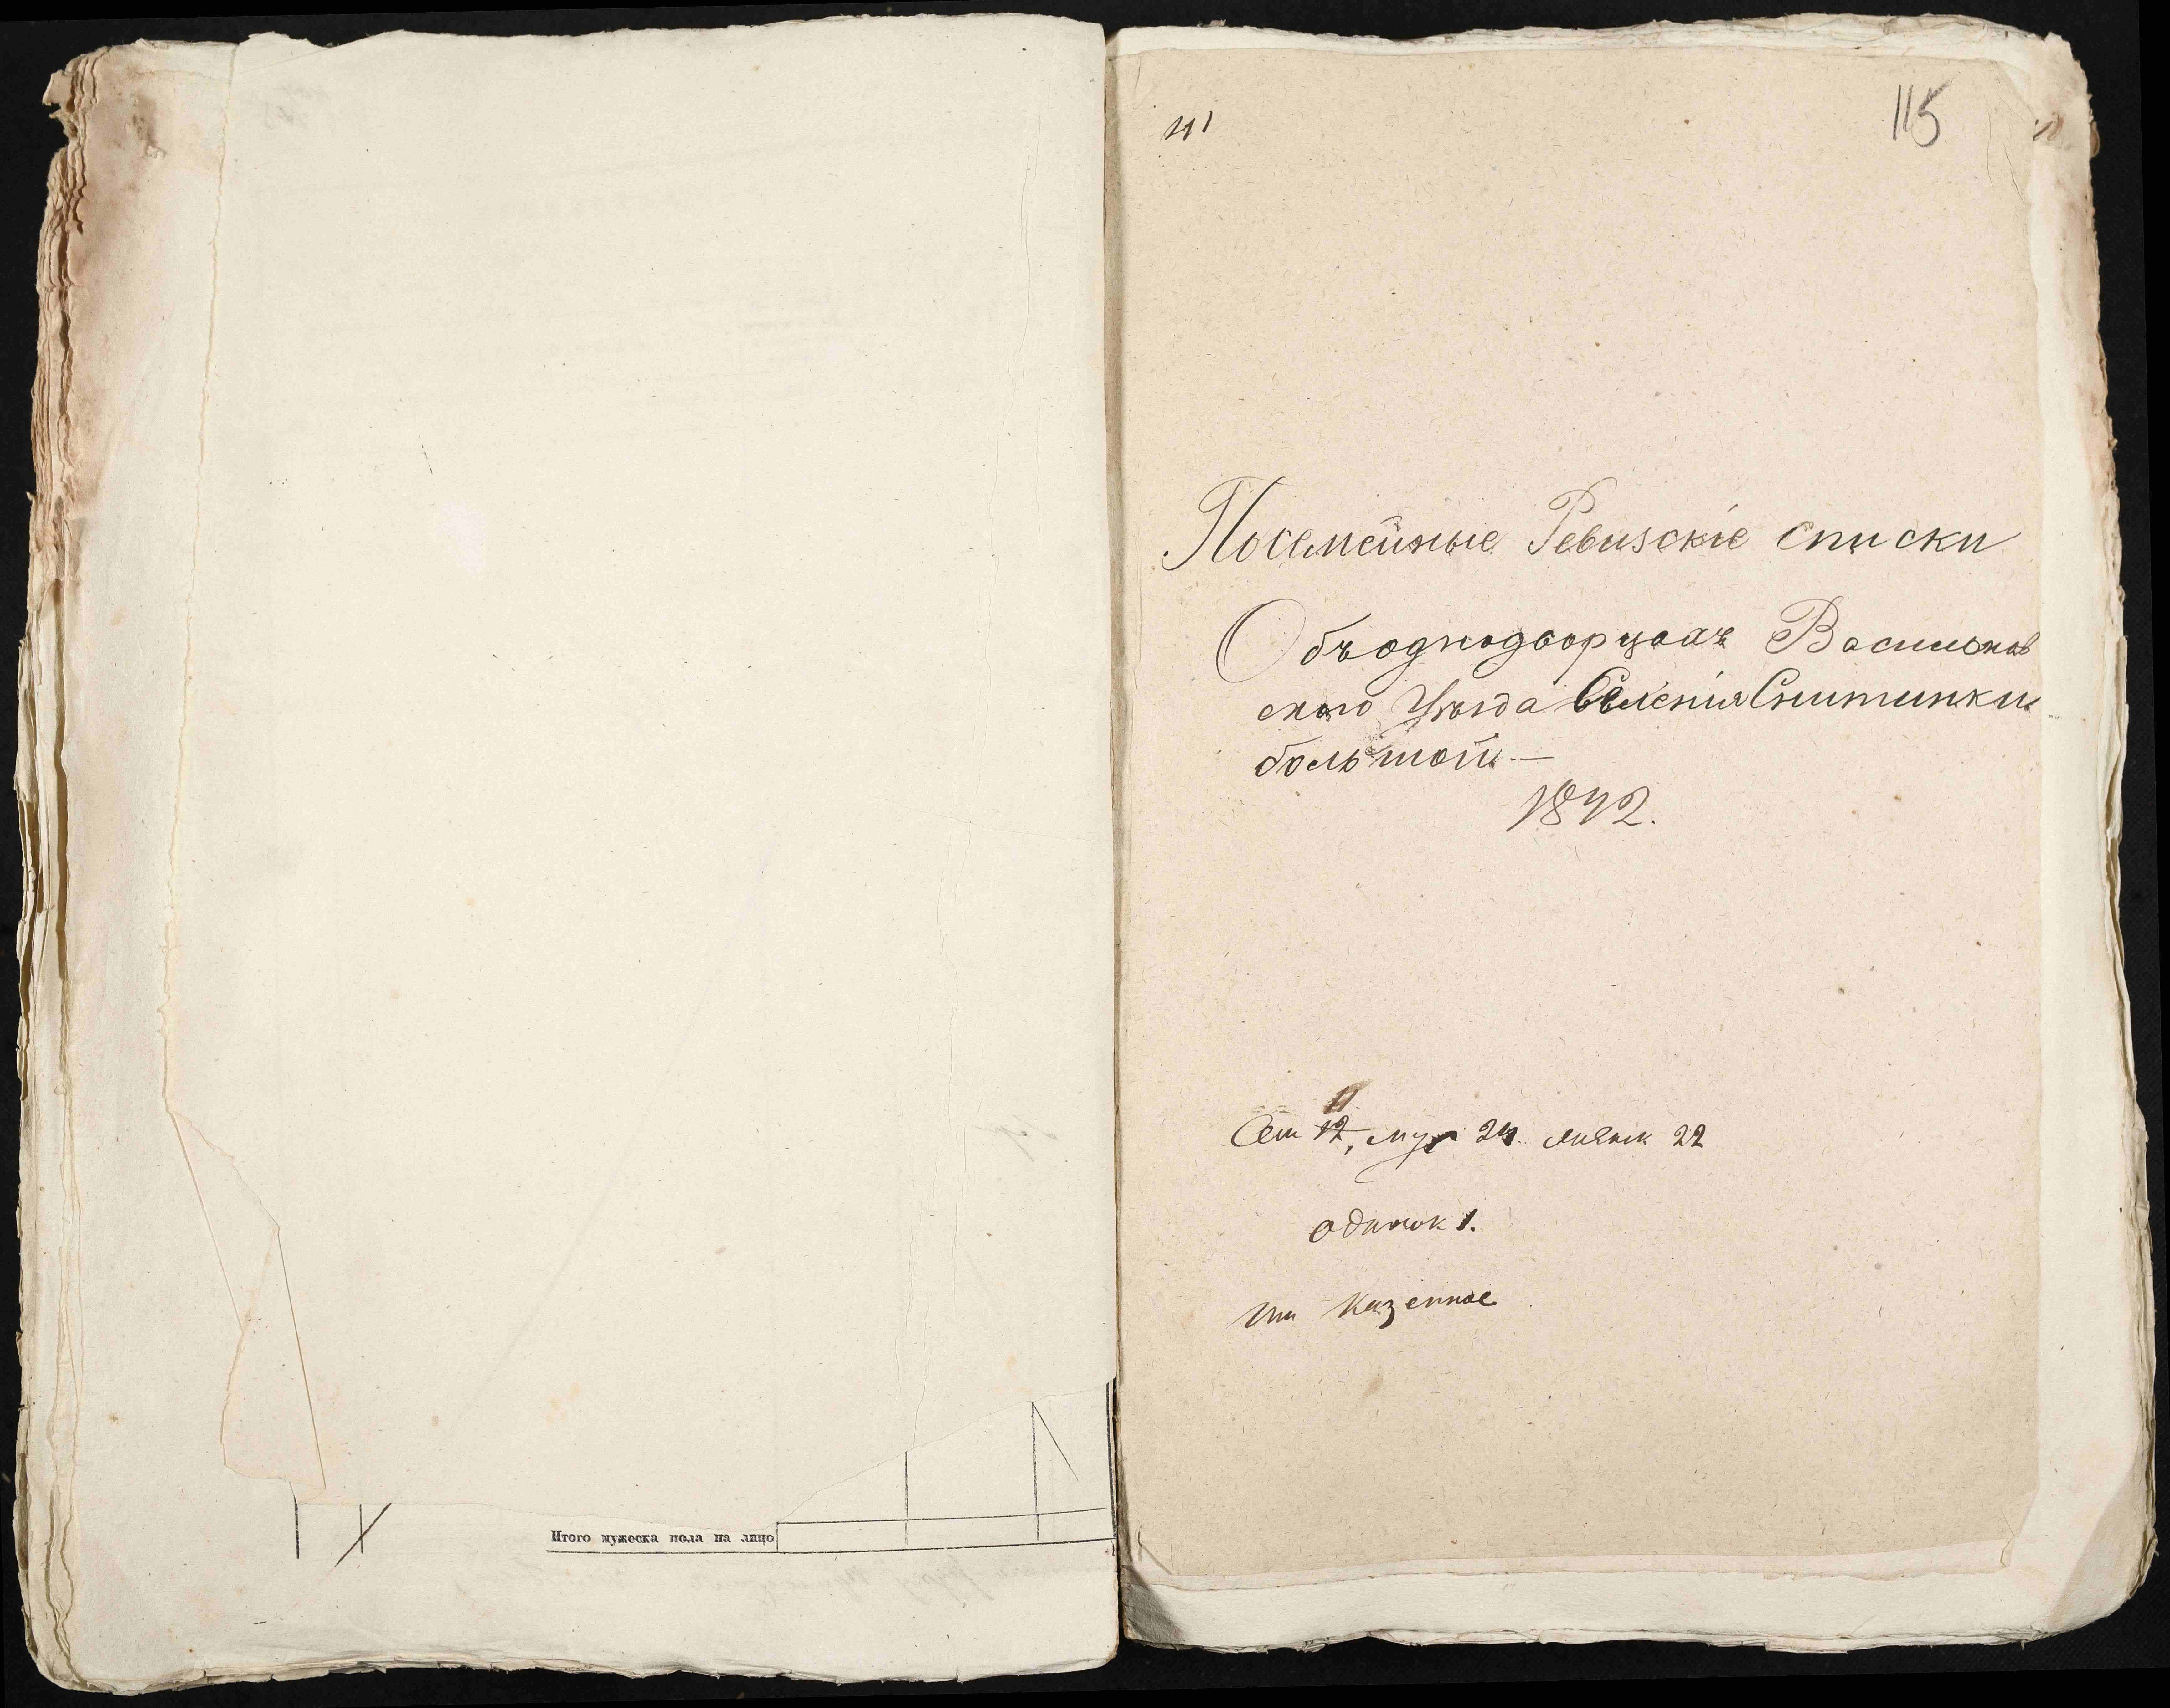 Итого мужеска пола на лицо
115
Посемейные Ревизскіе списки
Объ однодворцахъ Васильков
скаго Уѣзда Селенія Снитинки
большой —
1842.
11
Сем 12, муж 24 женск 22
одинок 1.
казенное